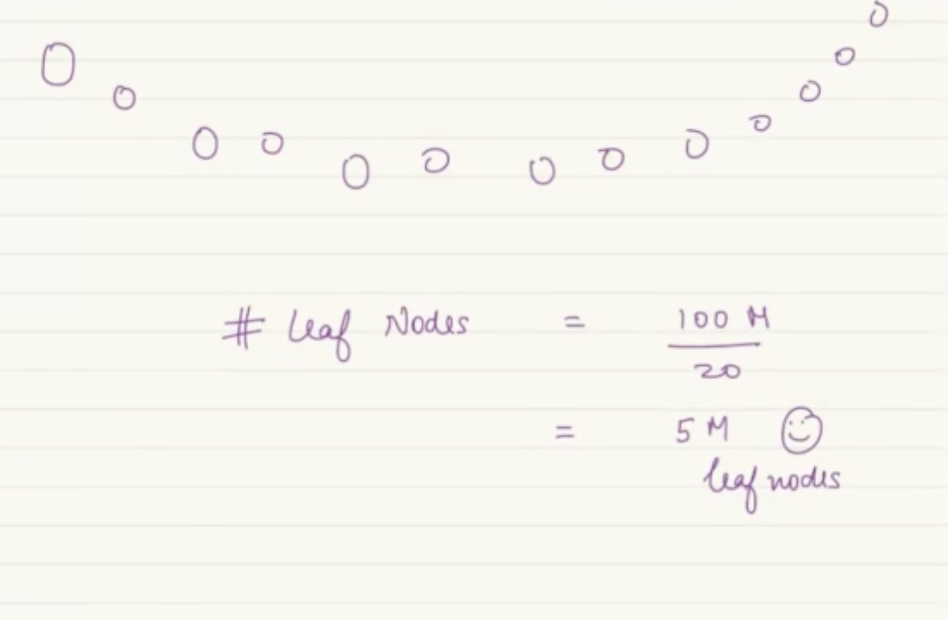 # Leaf Nodes = 100 M
20
= 5 M
leaf nodes